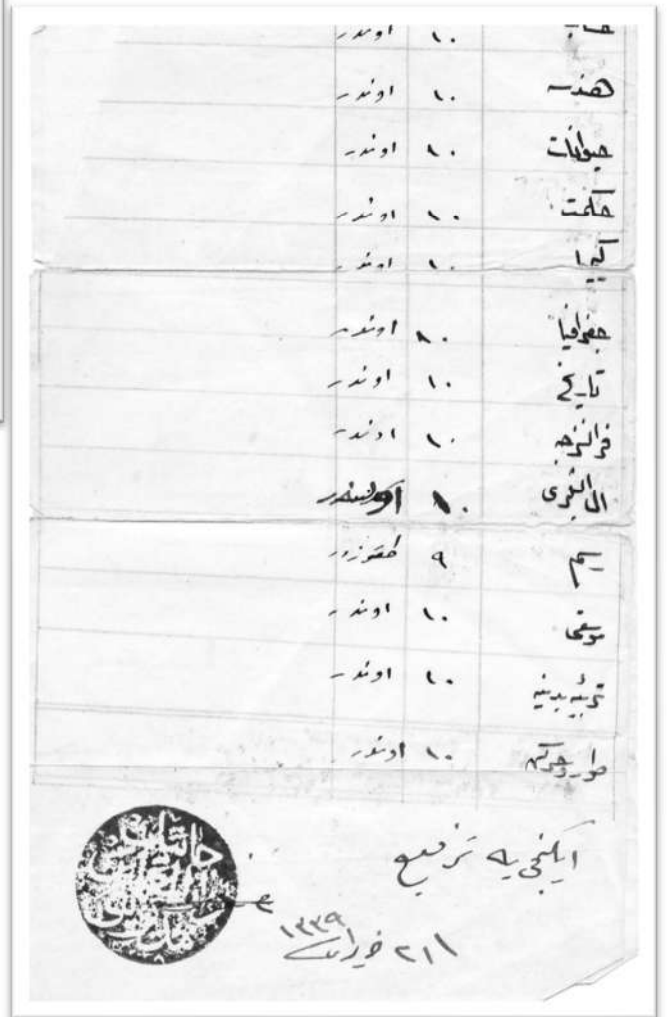 حساب ١٠ اوندر
هندسه ١٠ اوندر
حيوانات ١٠ اوندر
حكمت ١٠ اوندر
كيميا ١٠ اوندر
جغرافيا ١٠ اوندر
تاريخ ١٠ اوندر
فرانسزجه ١٠ اوندر
ال ايشلرى ١٠ اوندر
رسم ٩ طقوزدر
موسيقى ١٠ اوندر
تربيۀ بدنيه ١٠ اوندر
طور وحركت ١٠ اوندر
ايكنجى يه ترفيع
حزيران ١٣٣٩